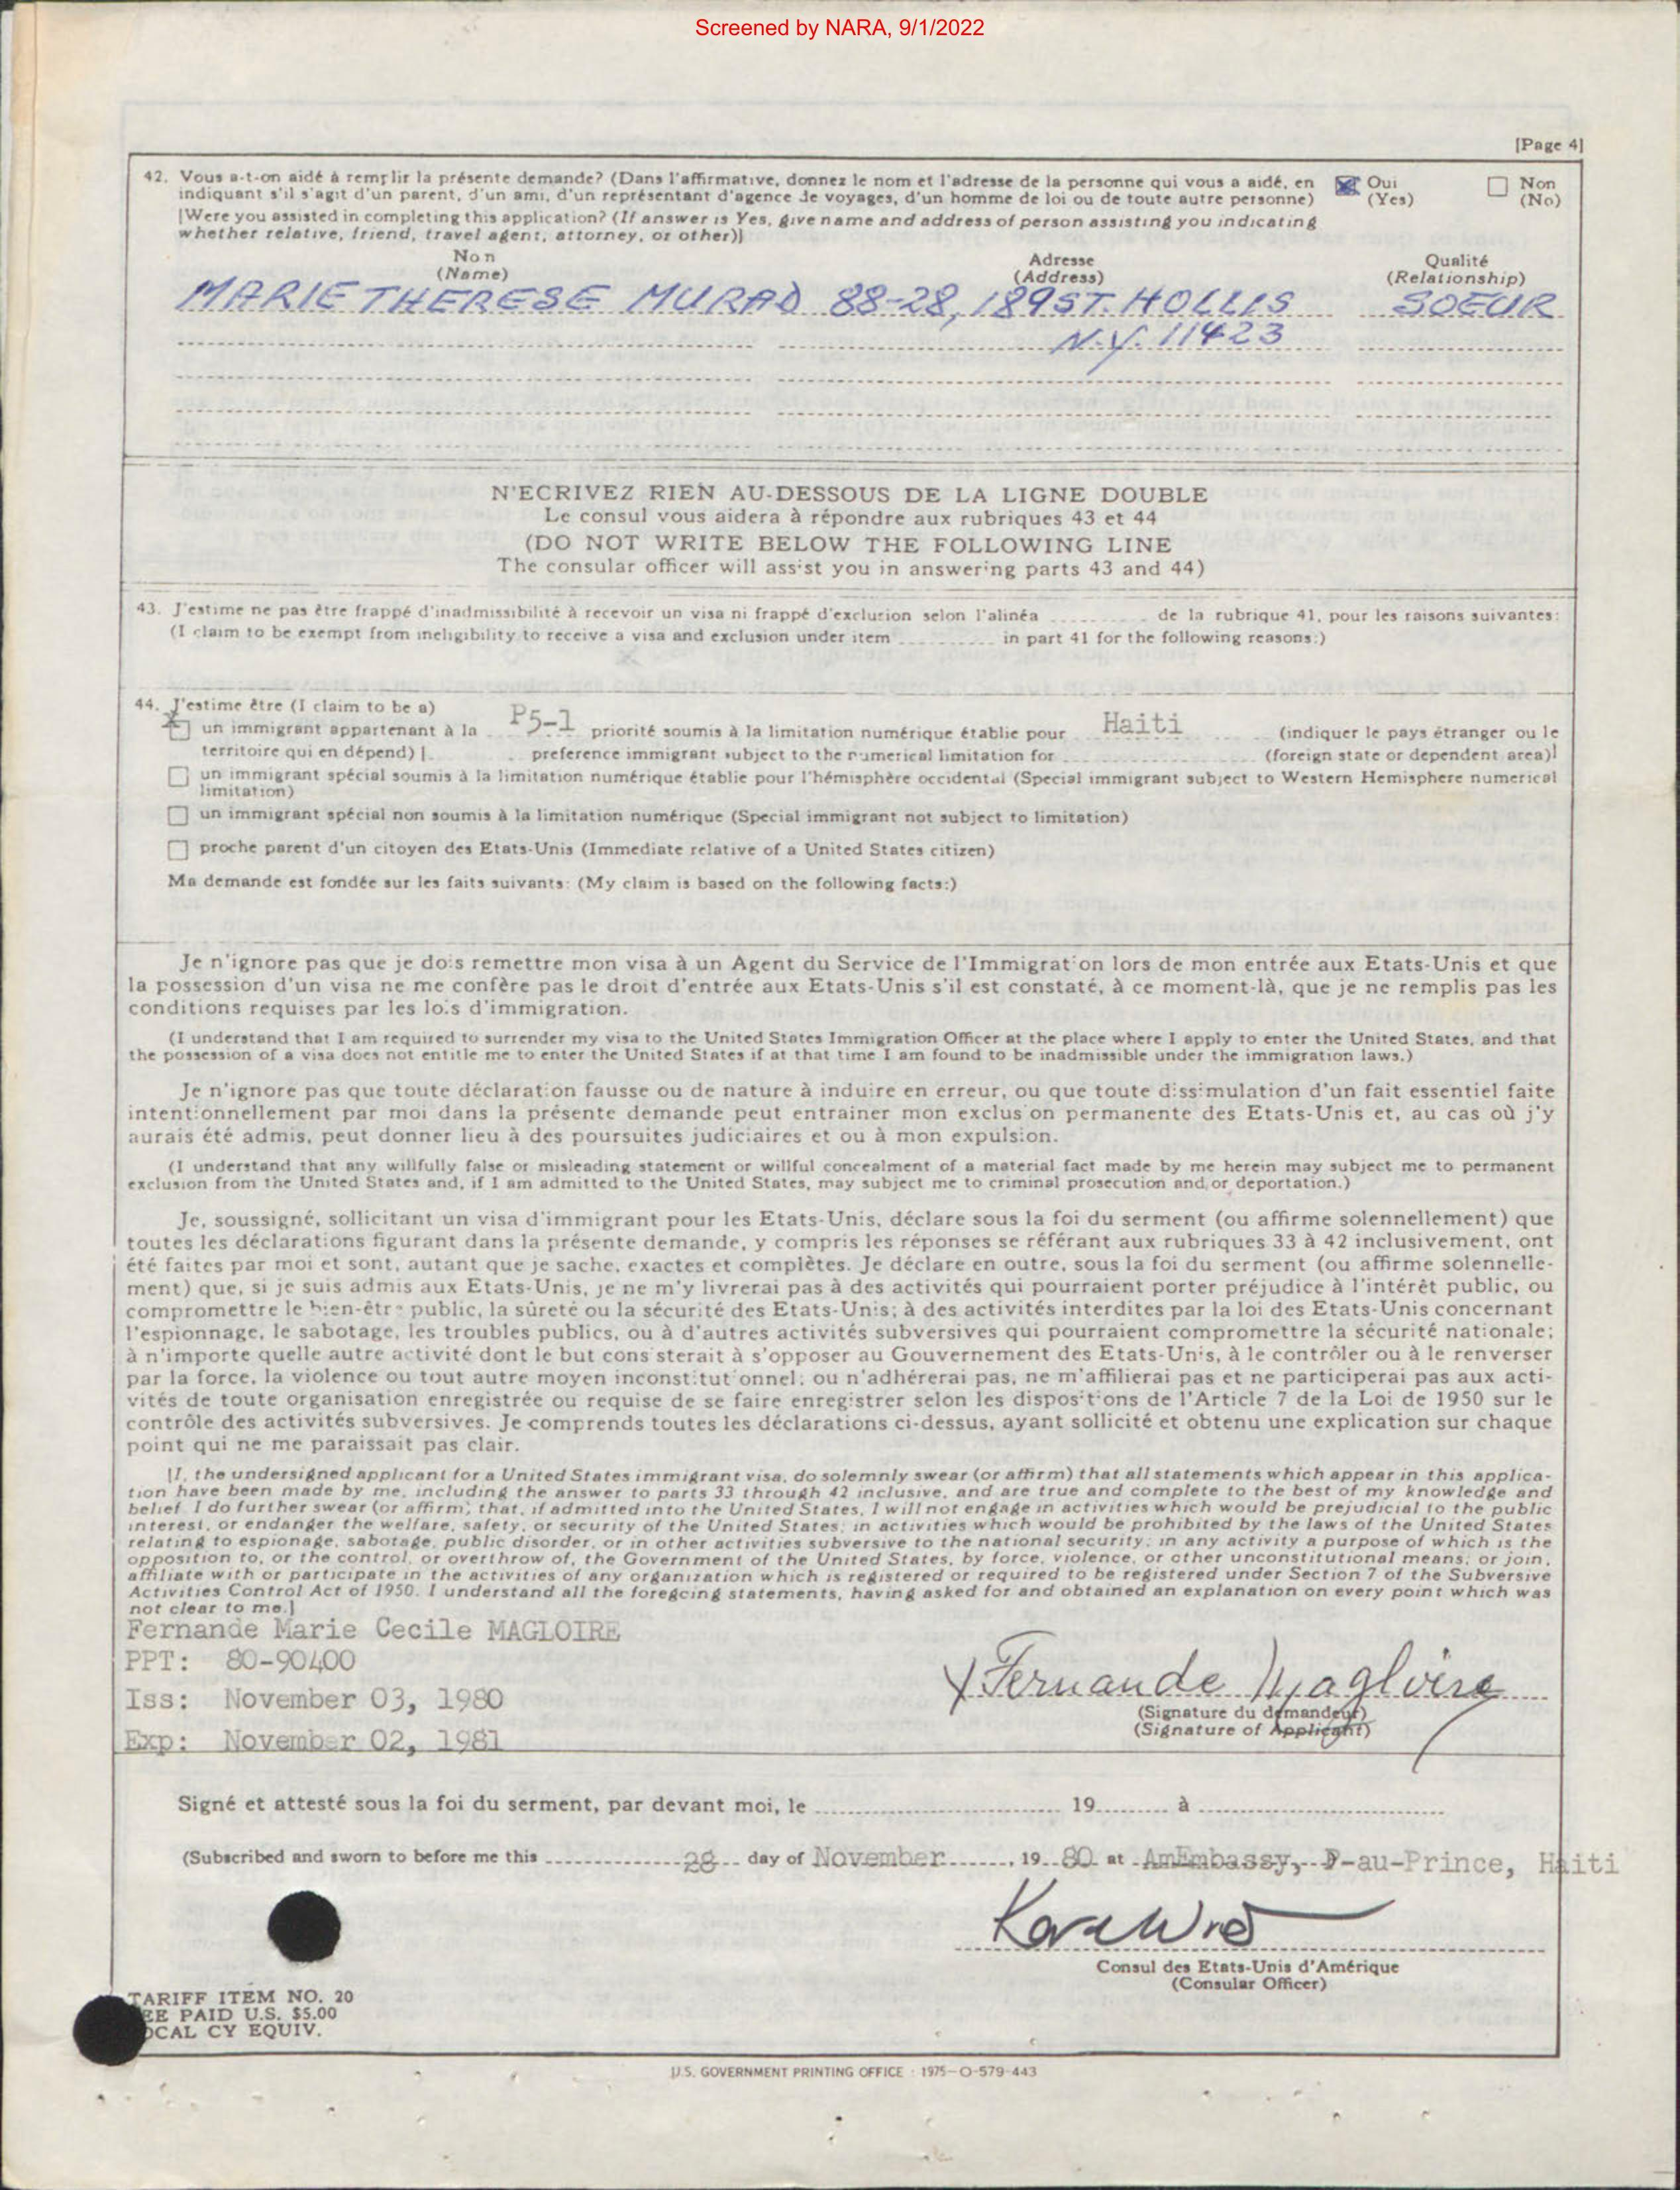 Screened by NARA, 9/1/2022
[Page 4]
42. Vous a-t-on aidé à remplir la présente demande? (Dans l'affirmative, donnez le nom et l'adresse de la personne qui vous a aidé, en
indiquant s'il s'agit d'un parent, d'un ami, d'un représentant d'agence de voyages, d'un homme de loi ou de toute autre personne)
Oui
(Yes)
Non
(No)
[Were you assisted in completing this application? (If answer is Yes, give name and address of person assisting you indicating
whether relative, friend, travel agent, attorney, or other)]
Non
(Name)
Adresse
(Address)
Qualité
(Relationship)
MARIE THERESE MURAD 88-28, 189 ST. HOLLIS SOEUR
N.Y. 11423
N'ECRIVEZ RIEN AU-DESSOUS DE LA LIGNE DOUBLE
Le consul vous aidera à répondre aux rubriques 43 et 44
(DO NOT WRITE BELOW THE FOLLOWING LINE
The consular officer will assist you in answering parts 43 and 44)
43. J'estime ne pas être frappé d'inadmissibilité à recevoir un visa ni frappé d'exclusion selon l'alinéa de la rubrique 41, pour les raisons suivantes:
(I claim to be exempt from ineligibility to receive a visa and exclusion under item in part 41 for the following reasons:)
44. J'estime être (I claim to be a)
X un immigrant appartenant à la P5-1 priorité soumis à la limitation numérique établie pour Haiti (indiquer le pays étranger ou le
territoire qui en dépend) [ preference immigrant subject to the numerical limitation for (foreign state or dependent area)]
un immigrant spécial soumis à la limitation numérique établie pour l'hémisphère occidental (Special immigrant subject to Western Hemisphere numerical
limitation)
un immigrant spécial non soumis à la limitation numérique (Special immigrant not subject to limitation)
proche parent d'un citoyen des Etats-Unis (Immediate relative of a United States citizen)
Ma demande est fondée sur les faits suivants: (My claim is based on the following facts:)
Je n'ignore pas que je dois remettre mon visa à un Agent du Service de l'Immigration lors de mon entrée aux Etats-Unis et que
la possession d'un visa ne me confère pas le droit d'entrée aux Etats-Unis s'il est constaté, à ce moment-là, que je ne remplis pas les
conditions requises par les lois d'immigration.
(I understand that I am required to surrender my visa to the United States Immigration Officer at the place where I apply to enter the United States, and that
the possession of a visa does not entitle me to enter the United States if at that time I am found to be inadmissible under the immigration laws.)
Je n'ignore pas que toute déclaration fausse ou de nature à induire en erreur, ou que toute dissimulation d'un fait essentiel faite
intentionnellement par moi dans la présente demande peut entrainer mon exclusion permanente des Etats-Unis et, au cas où j'y
aurais été admis, peut donner lieu à des poursuites judiciaires et ou à mon expulsion.
(I understand that any willfully false or misleading statement or willful concealment of a material fact made by me herein may subject me to permanent
exclusion from the United States and, if I am admitted to the United States, may subject me to criminal prosecution and/or deportation.)
Je, soussigné, sollicitant un visa d'immigrant pour les Etats-Unis, déclare sous la foi du serment (ou affirme solennellement) que
toutes les déclarations figurant dans la présente demande, y compris les réponses se référant aux rubriques 33 à 42 inclusivement, ont
été faites par moi et sont, autant que je sache, exactes et complètes. Je déclare en outre, sous la foi du serment (ou affirme solennelle-
ment) que, si je suis admis aux Etats-Unis, je ne m'y livrerai pas à des activités qui pourraient porter préjudice à l'intérêt public, ou
compromettre le bien-être public, la sûreté ou la sécurité des Etats-Unis; à des activités interdites par la loi des Etats-Unis concernant
l'espionnage, le sabotage, les troubles publics, ou à d'autres activités subversives qui pourraient compromettre la sécurité nationale;
à n'importe quelle autre activité dont le but consisterait à s'opposer au Gouvernement des Etats-Unis, à le contrôler ou à le renverser
par la force, la violence ou tout autre moyen inconstitutionnel; ou n'adhérerai pas, ne m'affilierai pas et ne participerai pas aux acti-
vités de toute organisation enregistrée ou requise de se faire enregistrer selon les dispositions de l'Article 7 de la Loi de 1950 sur le
contrôle des activités subversives. Je comprends toutes les déclarations ci-dessus, ayant sollicité et obtenu une explication sur chaque
point qui ne me paraissait pas clair.
[I, the undersigned applicant for a United States immigrant visa, do solemnly swear (or affirm) that all statements which appear in this applica-
tion have been made by me, including the answer to parts 33 through 42 inclusive, and are true and complete to the best of my knowledge and
belief. I do further swear (or affirm) that, if admitted into the United States, I will not engage in activities which would be prejudicial to the public
interest, or endanger the welfare, safety, or security of the United States; in activities which would be prohibited by the laws of the United States
relating to espionage, sabotage, public disorder, or in other activities subversive to the national security; in any activity a purpose of which is the
opposition to, or the control, or overthrow of, the Government of the United States, by force, violence, or other unconstitutional means; or join,
affiliate with or participate in the activities of any organization which is registered or required to be registered under Section 7 of the Subversive
Activities Control Act of 1950. I understand all the foregoing statements, having asked for and obtained an explanation on every point which was
not clear to me.]
Fernande Marie Cecile MAGLOIRE
PPT: 80-90400
Iss: November 03, 1980
Exp: November 02, 1981
X Fernande Magloire
(Signature du demandeur)
(Signature of Applicant)
Signé et attesté sous la foi du serment, par devant moi, le 19 à
(Subscribed and sworn to before me this 28 day of November, 19 80 at AmEmbassy, P-au-Prince, Haiti
Consul des Etats-Unis d'Amérique
(Consular Officer)
TARIFF ITEM NO. 20
EE PAID U.S. $5.00
OCAL CY EQUIV.
U.S. GOVERNMENT PRINTING OFFICE : 1975-O-579-443